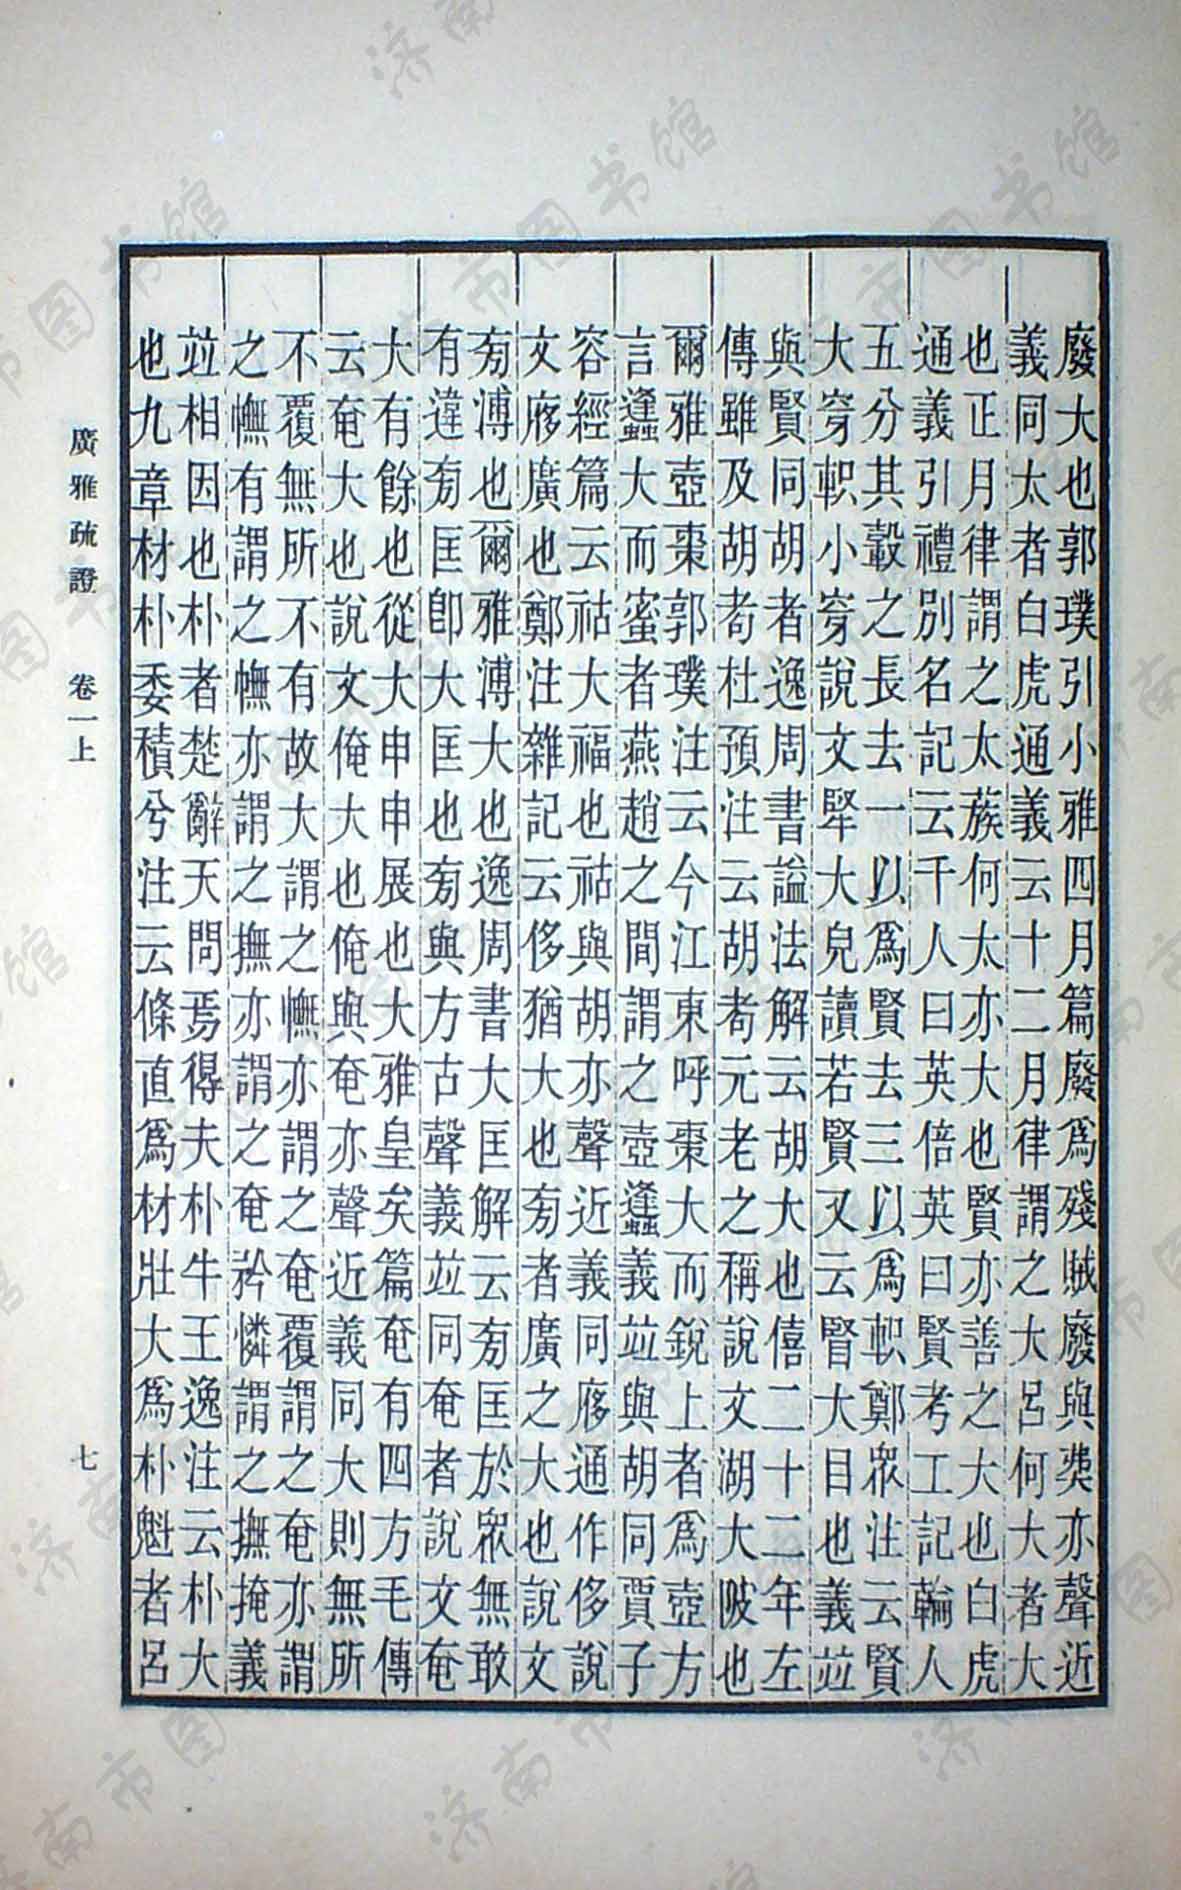 廢大也郭璞引小雅四月篇廢爲殘賊廢與亦聲近
義同太者白虎通義云十二月律謂之大呂何大者大
也正月律謂之太蔟何太亦大也賢亦善之大也白虎
通義引禮別名記云千人曰英倍英曰賢考工記輪人
五分其轂之長去一以爲賢去三以爲軹鄭眾注云賢
大穿軹小穿說文大皃讀若賢又云大目也義竝
與賢同胡者逸周書諡法解云胡大也僖二十二年左
傳雖及胡耇杜預注云胡耇元老之稱說文湖大陂也
爾雅壺棗郭璞注云今江東呼棗大而銳上者爲壺方
言蠭大而蜜者燕趙之間謂之壺蠭義竝與胡同賈子
容經篇云祜大福也祜與胡亦聲近義同㢋通作侈說
文㢋廣也鄭注雜記云侈猶大也㫄者廣之大也說文
㫄溥也爾雅溥大也逸周書大匡解云㫄匡於眾無敢
有違㫄匡卽大匡也㫄與方古聲義竝同奄者說文奄
大有餘也從大申申展也大雅皇矣篇奄有四方毛傳
云奄大也說文俺大也俺與奄亦聲近義同大則無所
不覆無所不有故大謂之幠亦謂之奄覆謂之奄亦謂
之幠有謂之幠亦謂之撫亦謂之奄矜憐謂之撫掩義
竝相因也朴者楚辭天問焉得夫朴牛王逸注云朴大
也九章材朴委積兮注云條直爲材壯大爲朴魁者呂
廣雅疏證 卷一上 七
济南市图书馆